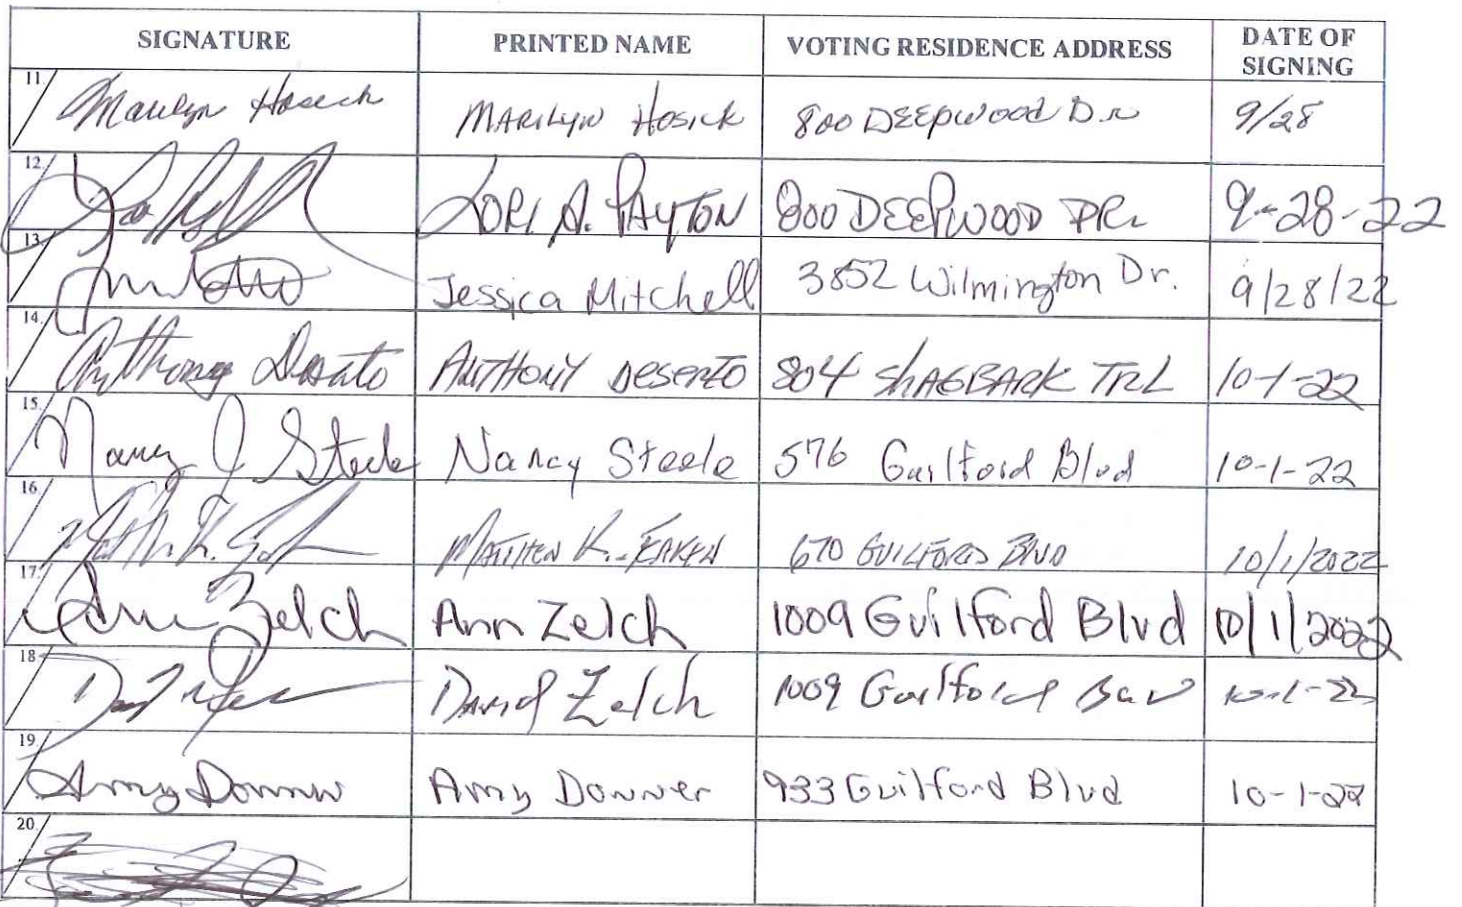 SIGNATURE PRINTED NAME VOTING RESIDENCE ADDRESS DATE OF SIGNING
11 Marilyn Hosick MARILYN HOSICK 800 DEEPWOOD DR 9/28
12. LORI A. PAYTON 800 DEEPWOOD DR. 9-28-22
13. Jessica Mitchell 3852 Wilmington Dr. 9/28/22
14. Anthony Deserto ANTHONY DESERTO 804 SHAGBARK TRL 10-1-22
15. Nancy J Steele Nancy Steele 576 Guilford Blvd 10-1-22
16. MATTHEW K. 670 GUILFORD BLVD 10/1/2022
17. Ann Zelch Ann Zelch 1009 Guilford Blvd 10/1/2022
18 David Zelch 1009 Guilford 10-1-22
19. Amy Donner Amy Donner 933 Guilford Blvd 10-1-22
20.